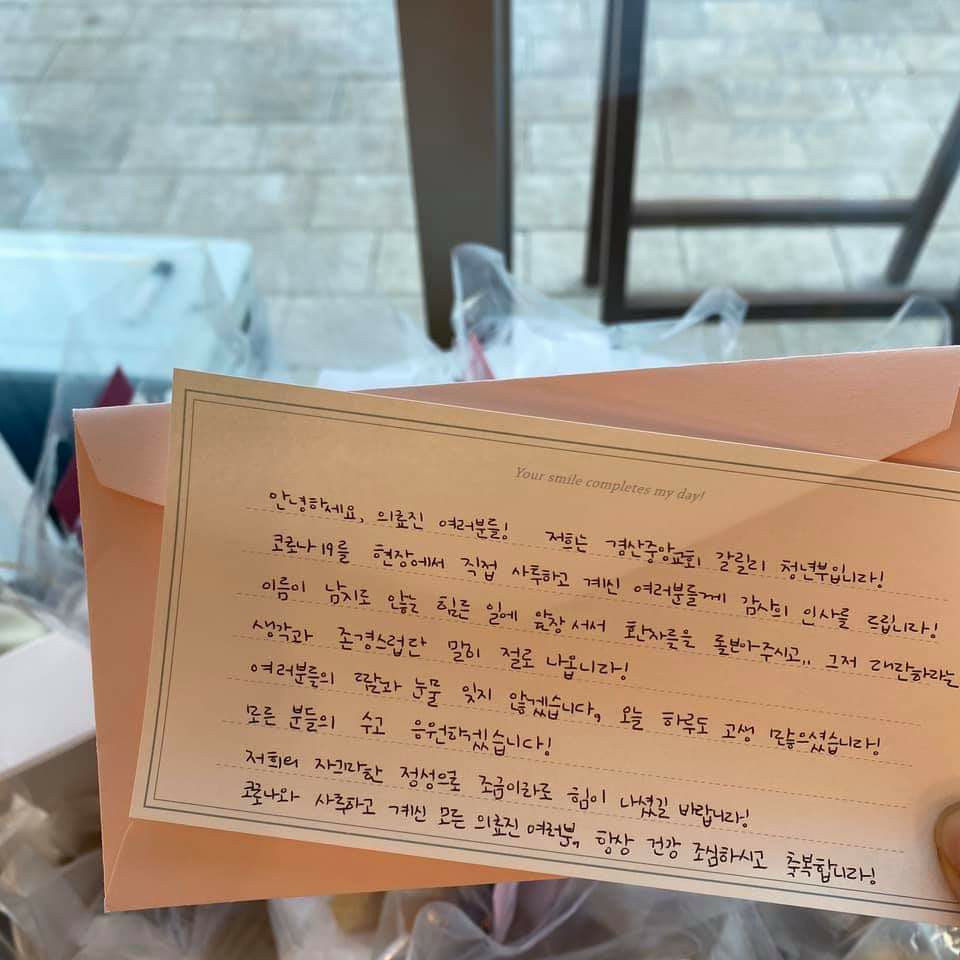 Your smile completes my day!
안녕하세요, 의료진 여러분들! 저희는 경산중앙교회 갈릴리 청년부입니다!
코로나19를 현장에서 직접 사투하고 계신 여러분들께 감사의 인사를 드립니다!
이름이 남지도 않는 힘든 일에 앞장서서 환자들을 돌봐주시고.. 그저 대단하라는
생각과 존경스럽단 말이 절로 나옵니다!
여러분들의 땀과 눈물 잊지 않겠습니다, 오늘 하루도 고생 많으셨습니다!
모든 분들의 수고 응원하겠습니다!
저희의 자그마한 정성으로 조금이라도 힘이 나셨길 바랍니다!
코로나와 사투하고 계신 모든 의료진 여러분, 항상 건강 조심하시고 축복합니다!